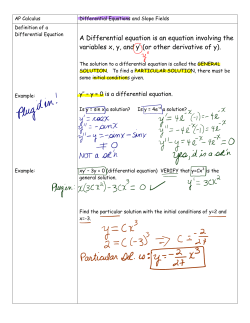 AP Calculus
Differential Equations and Slope Fields
Definition of a
Differential Equation
A Differential equation is an equation involving the
variables x, y, and y' (or other derivative of y).
y''
The solution to a differential equation is called the GENERAL
SOLUTION. To find a PARTICULAR SOLUTION, there must be
some initial conditions given.
Example:
y'' – y = 0 is a differential equation.
Plug'd in!
Is y = sin x a solution? Is y = 4e^-x a solution?
y' = cosx
y' = 4e^-x(-1) = -4e^-x
y'' = -sinx
y'' = -4e^-x(-1) = 4e^-x
y'' - y = -sinx - sinx
y'' - y = 4e^-x - 4e^-x = 0
≠ 0
NOT a sol'n
Yes, it is a sol'n
Example:
xy' – 3y = 0 (differential equation) VERIFY that y=Cx³ is the
general solution.
Plug in
x(3Cx²) - 3(Cx³) = 0 ✓
y' = 3Cx²
Find the particular solution with the initial conditions of y=2 and
x=-3.
y = Cx³
2 = C(-3)³ → C = -2/27
Particular Sol. is: y = -2/27 x³